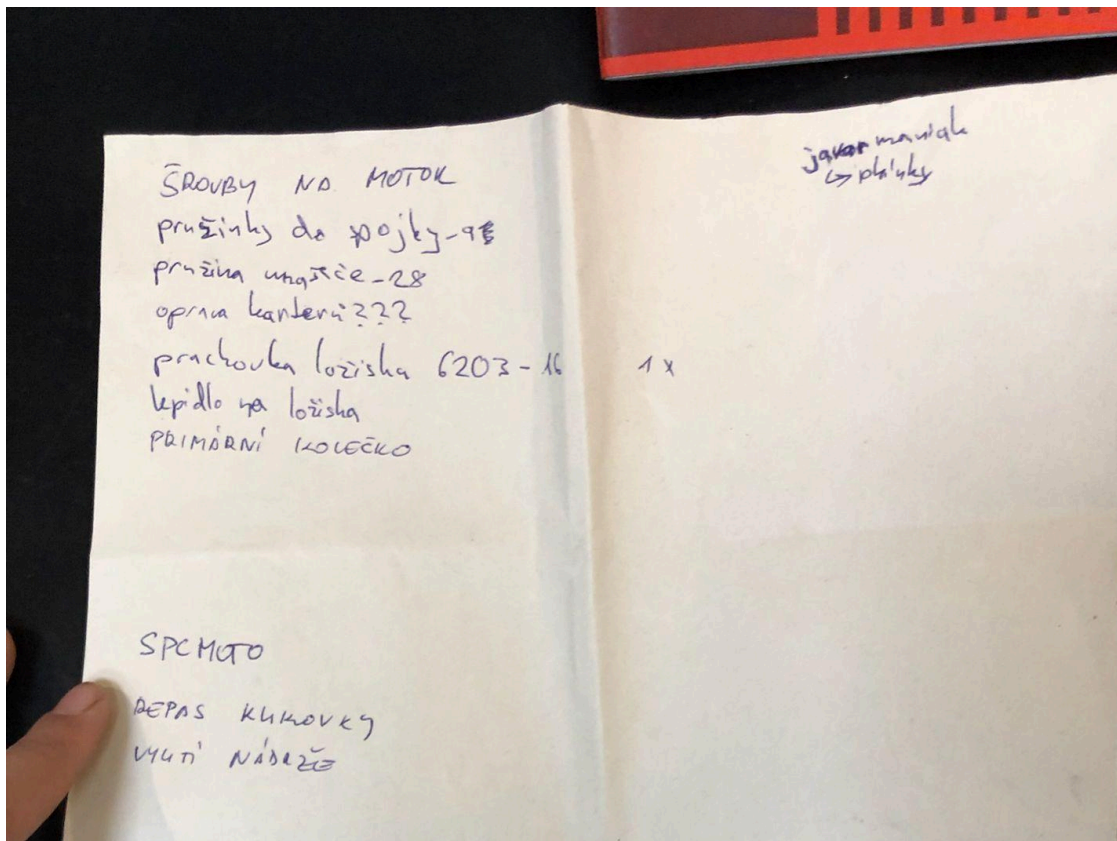 ŠROUBY NA MOTOR
pružinky do spojky-
pružina unašeče-28
oprava karterů???
prachovka ložiska 6203-16 1x
lepidlo na ložiska
PRIMÁRNÍ KOLEČKO
SPCMOTO
REPAS KLIKOVKY
VYLITÍ NÁDRŽE
maniak